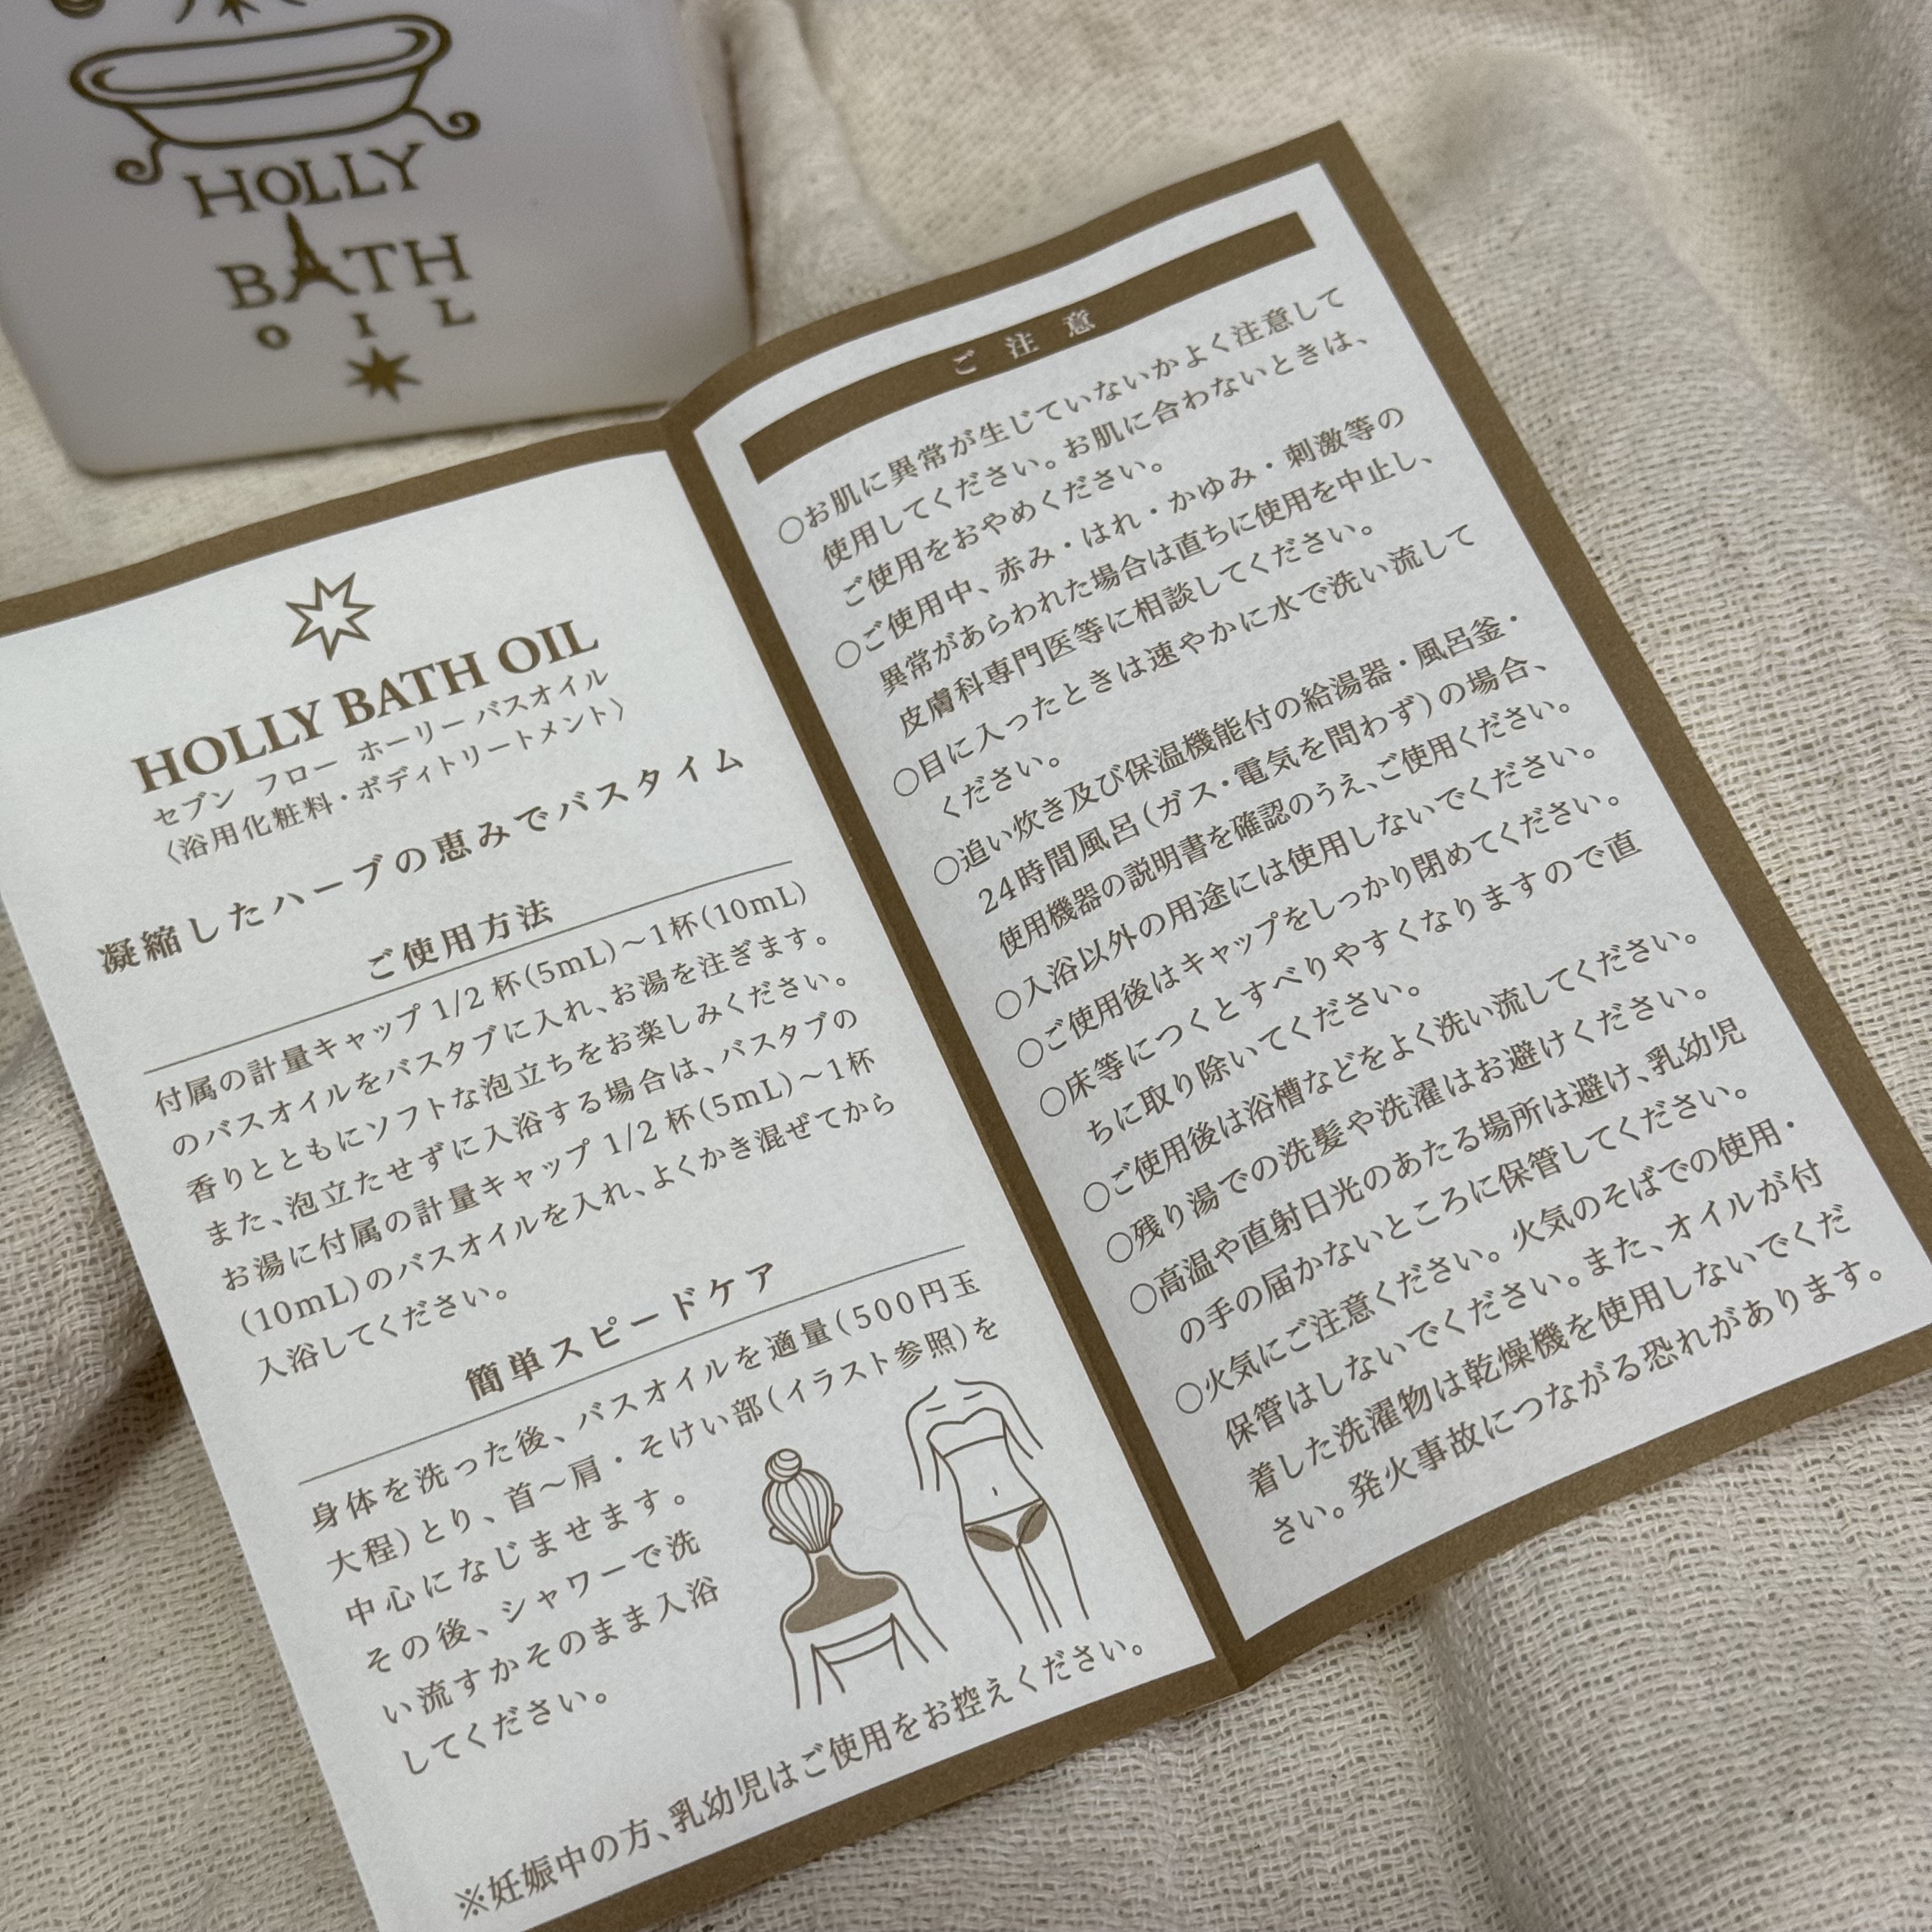 HOLLY
BATH
OIL
HOLLY BATH OIL
セブン フロー ホーリー バスオイル
〈浴用化粧料・ボディトリートメント〉
凝縮したハーブの恵みでバスタイム
ご使用方法
付属の計量キャップ 1/2 杯(5mL)〜1杯(10mL)
のバスオイルをバスタブに入れ、お湯を注ぎます。
香りとともにソフトな泡立ちをお楽しみください。
また、泡立たせずに入浴する場合は、バスタブの
お湯に付属の計量キャップ 1/2 杯(5mL)〜1杯
(10mL)のバスオイルを入れ、よくかき混ぜてから
入浴してください。
簡単スピードケア
身体を洗った後、バスオイルを適量(500円玉
大程)とり、首〜肩・そけい部(イラスト参照)を
中心になじませます。
その後、シャワーで洗
い流すかそのまま入浴
してください。
※妊娠中の方、乳幼児はご使用をお控えください。
ご注意
○お肌に異常が生じていないかよく注意して
使用してください。お肌に合わないときは、
ご使用をおやめください。
○ご使用中、赤み・はれ・かゆみ・刺激等の
異常があらわれた場合は直ちに使用を中止し、
皮膚科専門医等に相談してください。
○目に入ったときは速やかに水で洗い流して
ください。
○追い炊き及び保温機能付の給湯器・風呂釜・
24時間風呂(ガス・電気を問わず)の場合、
使用機器の説明書を確認のうえ、ご使用ください。
○入浴以外の用途には使用しないでください。
○ご使用後はキャップをしっかり閉めてください。
○床等につくとすべりやすくなりますので直
ちに取り除いてください。
○ご使用後は浴槽などをよく洗い流してください。
○残り湯での洗髪や洗濯はお避けください。
○高温や直射日光のあたる場所は避け、乳幼児
の手の届かないところに保管してください。
○火気にご注意ください。火気のそばでの使用・
保管はしないでください。また、オイルが付
着した洗濯物は乾燥機を使用しないでくだ
さい。発火事故につながる恐れがあります。